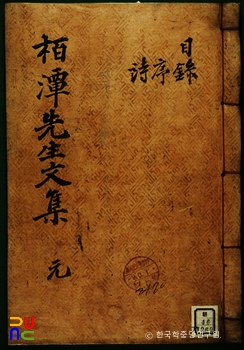 目錄
序
詩
栢潭先生文集 元
© 한국학중앙연구원